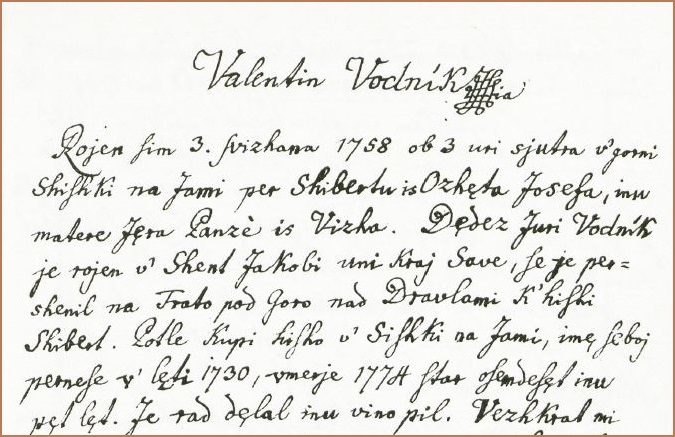 Valentin Vodnik
Rojen sim 3. svizhana 1758 ob 3 uri sjutra v' gorni
Shishki na Jami per Shibertu is Ozhęta Josefa, inu
matere Jęra Panzè is Vizha. Dędez Juri Vodnik
je rojen v' Shent Jakobi uni kraj Save, se je per=
shenil na Trato pod Goro nad Dravlami k' hishi
Shibert. Potle kupi hisho v' Sishki na Jami, imę seboj
pernese v' lęti 1730, vmerje 1774 star osemdesęt inu
pęt lęt. Je rad dęlal inu vino pil. Vezhkrat mi